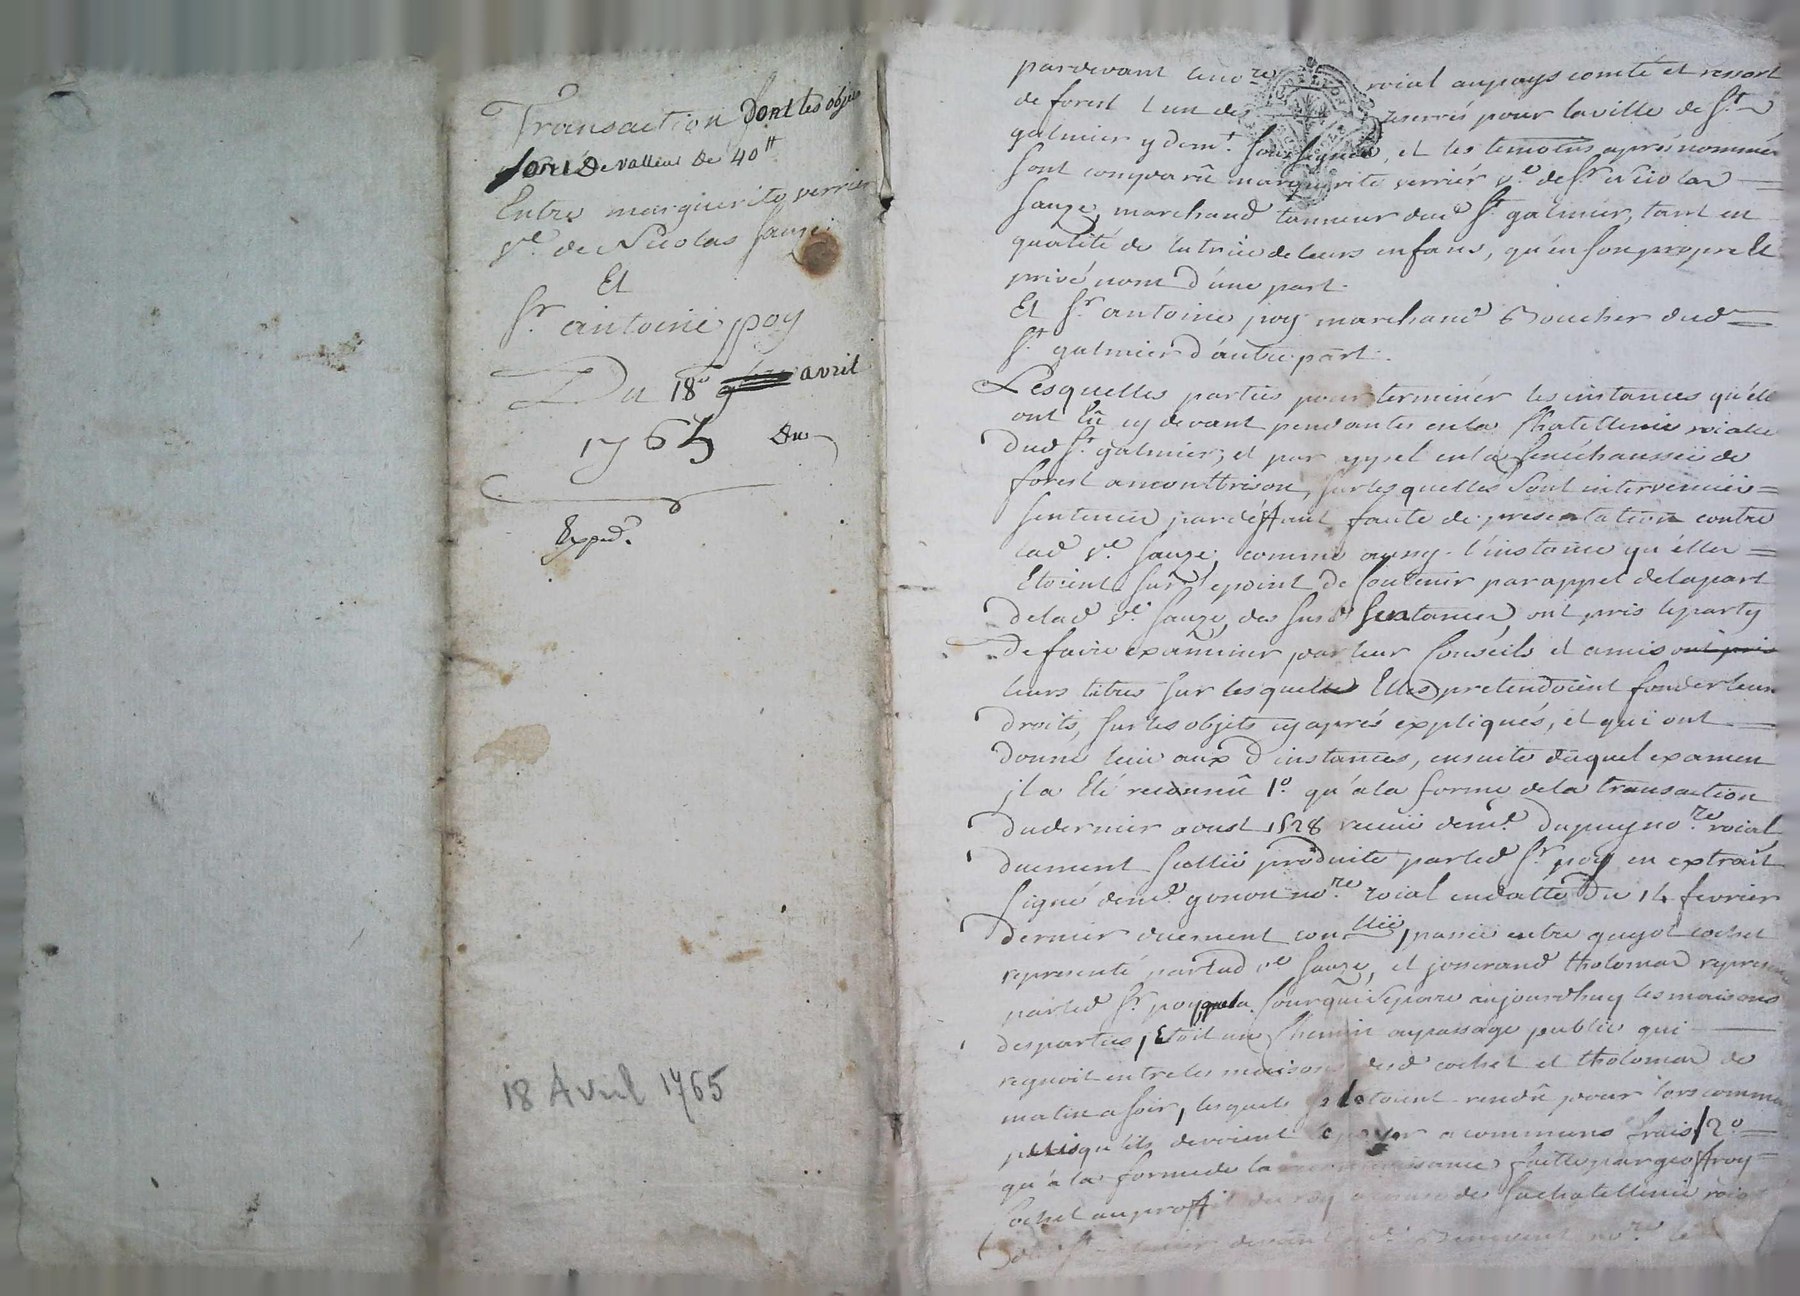 Transaction Dont les objets
sont De valleur De 40tt
Entre marguerite verrier
ve. de Nicolas Sauze
Et
Sr. antoine poy
Du 18e avril
1765 Du
Exped.
18 Avril 1765
pardevant le nore roial au pays comté et ressort
de forest l'un des reservés pour la ville de St.
galmier y demt. soussigné, et les temoins aprés nommés
sont comparû marguerite verriér ve. de sr. Nicolas
Sauze, marchand tanneur dud St. galmier, tant en
qualité de tutrice de leurs enfans, qu'en son propre et
privé nom d'une part.
Et Sr. antoine poy marchand Boucher dud
St. galmier d'autre part.
Lesquelles parties pour terminér les instances qu'élles
ont Eü cy devant pendantes en la Chatellenie roiale
dud St. galmier, et par appel en la senéchaussée de
forest a monttrison, sur lesquelles sont intervenues
sentences par déffaut faute de presentation contre
lad ve. Sauze, comme aussy l'instance qu'élles
Etoient sur le point de soutenir par appel de la part
de lad ve. Sauze, des susd sentances, ont pris le party
de faire examiner par leur Conseils et amis ont pris
leurs titres sur lesquels Elles pretendoient fonder leurs
droits, sur les objets cy aprés expliqués, et qui ont
donné lieu aux d instances, ensuite duquel examen
il a Eté reconnû 1o. qu'a la forme de la transaction
du dernier aoust 1528 receüe de me. Dupuy nore. roial
duement scellée produite par led Sr. poy en extrait
signé de me. gonon nore. roial en datte Du 14 fevrier
dernier duement conllée, passée entre guyot cochet
representé par lad ve Sauze, et josserand tholomas represente
par led Sr. poy, que la Cour qui separe aujourdhuy les maisons
des parties, Etoit un Chemin ou passage public qui
regnoit entre les maisons desd cochet et tholomas de
matin a soir, lesquels se étoient rendû pour lors commun
puisqu'ils devoient le payer a communs frais / 2o
qu'a la forme de la reconnoissance faitte par geoffroy
Cochet au proffit du roy a cause de sa chatellenie roiale